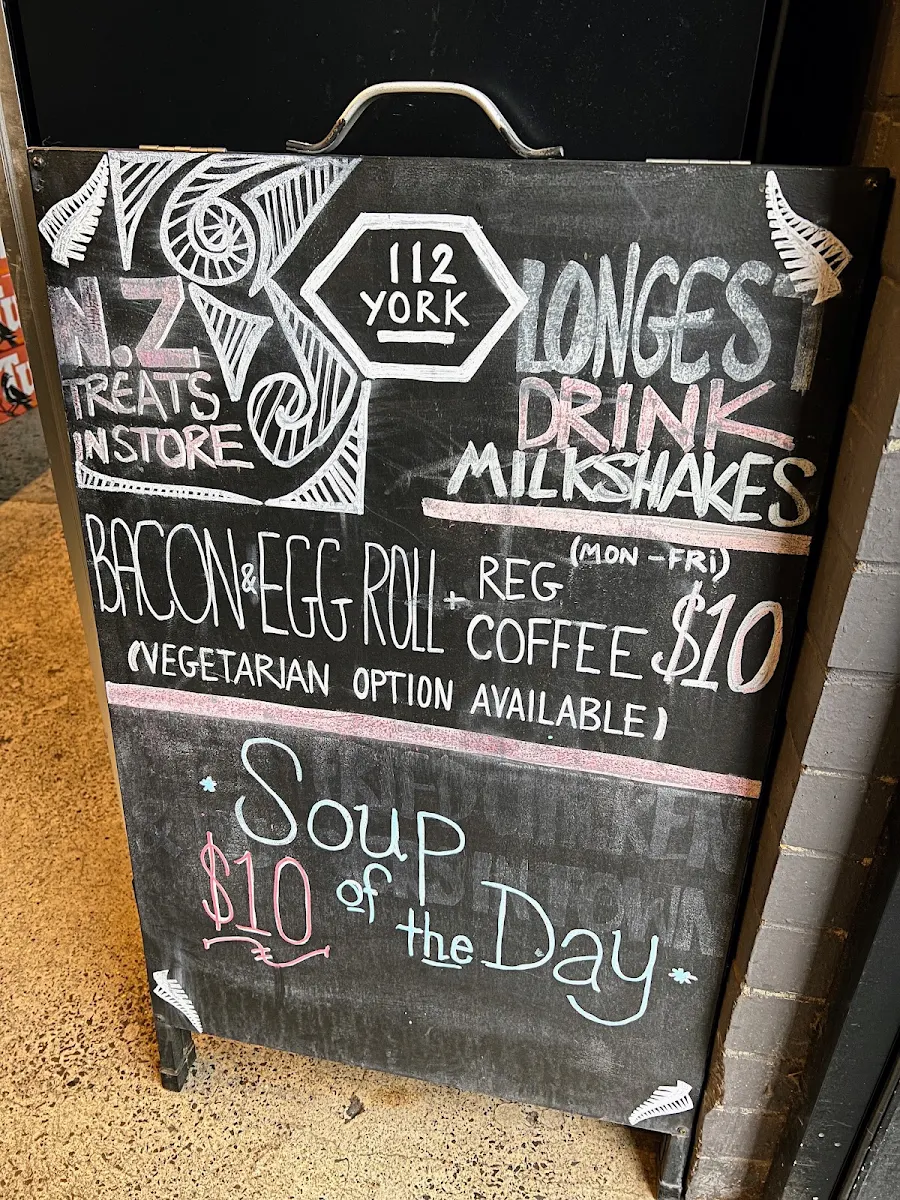 112
YORK
N.Z.
TREATS
IN STORE
LONGEST
DRINK
MILKSHAKES
(MON - FRI)
BACON & EGG ROLL + REG COFFEE $10
(VEGETARIAN OPTION AVAILABLE)
* Soup
$10 of
the Day *